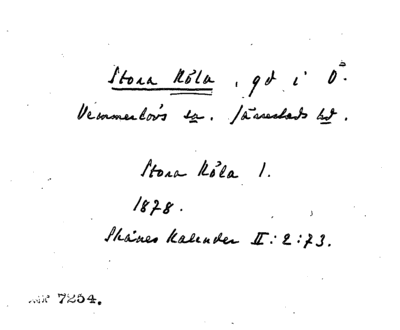 Stora Råla, gd i Ö.
Vemmerlövs sn. Järrestads hd.
Stora Råla 1.
1878.
Skånes Kalender II:2:73.
7254.